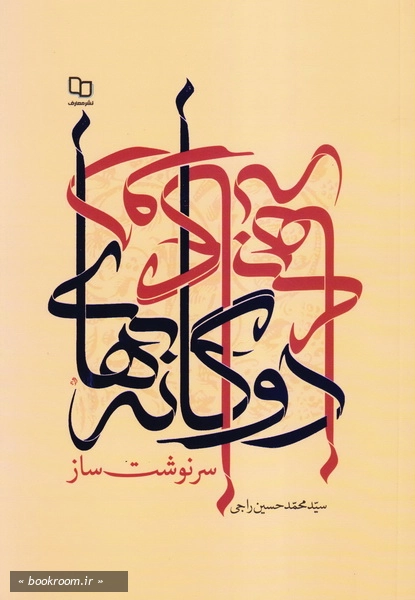 نشر معارف
دوگانه‌های
سرنوشت ساز
سیّد محمّد حسین راجی
« bookroom.ir »